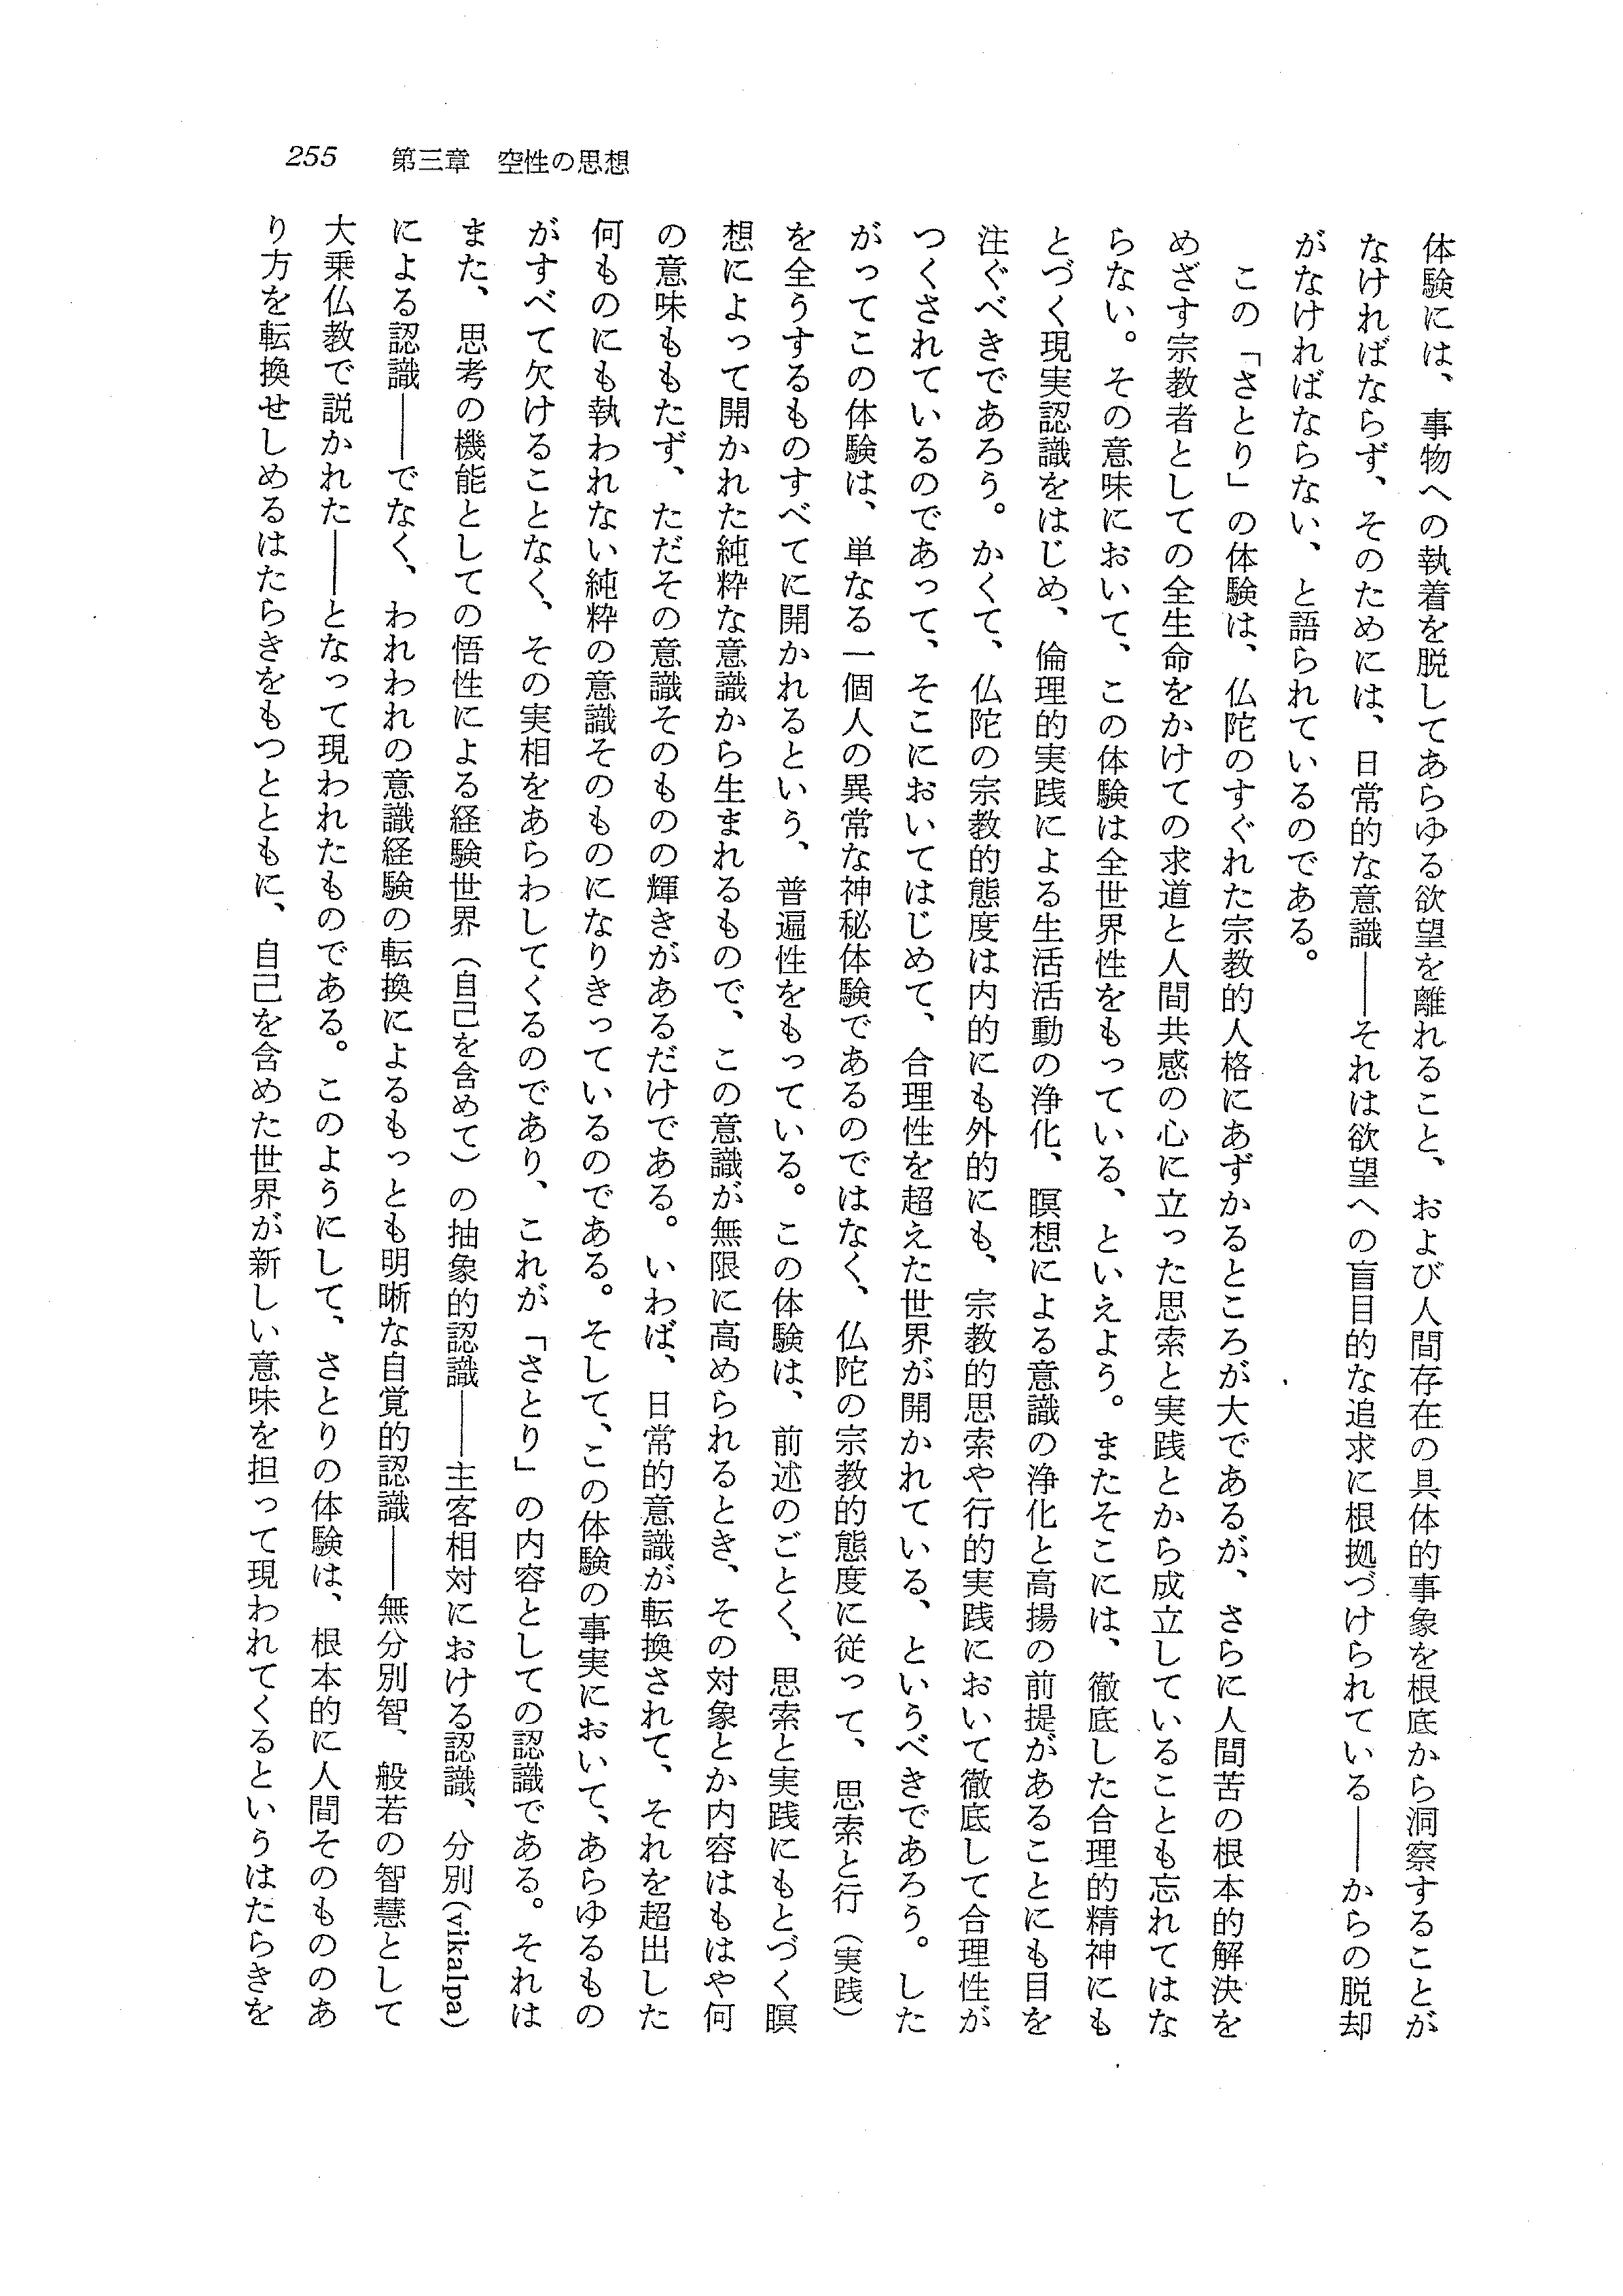 255　第三章　空性の思想
体験には、事物への執着を脱してあらゆる欲望を離れること、および人間存在の具体的事象を根底から洞察することが
なければならず、そのためには、日常的な意識――それは欲望への盲目的な追求に根拠づけられている――からの脱却
がなければならない、と語られているのである。
　この「さとり」の体験は、仏陀のすぐれた宗教的人格にあずかるところが大であるが、さらに人間苦の根本的解決を
めざす宗教者としての全生命をかけての求道と人間共感の心に立った思索と実践とから成立していることも忘れてはな
らない。その意味において、この体験は全世界性をもっている、といえよう。またそこには、徹底した合理的精神にも
とづく現実認識をはじめ、倫理的実践による生活活動の浄化、瞑想による意識の浄化と高揚の前提があることにも目を
注ぐべきであろう。かくて、仏陀の宗教的態度は内的にも外的にも、宗教的思索や行的実践において徹底して合理性が
つくされているのであって、そこにおいてはじめて、合理性を超えた世界が開かれている、というべきであろう。した
がってこの体験は、単なる一個人の異常な神秘体験であるのではなく、仏陀の宗教的態度に従って、思索と行（実践）
を全うするものすべてに開かれるという、普遍性をもっている。この体験は、前述のごとく、思索と実践にもとづく瞑
想によって開かれた純粋な意識から生まれるもので、この意識が無限に高められるとき、その対象とか内容はもはや何
の意味ももたず、ただその意識そのものの輝きがあるだけである。いわば、日常的意識が転換されて、それを超出した
何ものにも執われない純粋の意識そのものになりきっているのである。そして、この体験の事実において、あらゆるもの
がすべて欠けることなく、その実相をあらわしてくるのであり、これが「さとり」の内容としての認識である。それは
また、思考の機能としての悟性による経験世界（自己を含めて）の抽象的認識――主客相対における認識、分別(vikalpa)
による認識――でなく、われわれの意識経験の転換によるもっとも明晰な自覚的認識――無分別智、般若の智慧として
大乗仏教で説かれた――となって現われたものである。このようにして、さとりの体験は、根本的に人間そのもののあ
り方を転換せしめるはたらきをもつとともに、自己を含めた世界が新しい意味を担って現われてくるというはたらきを